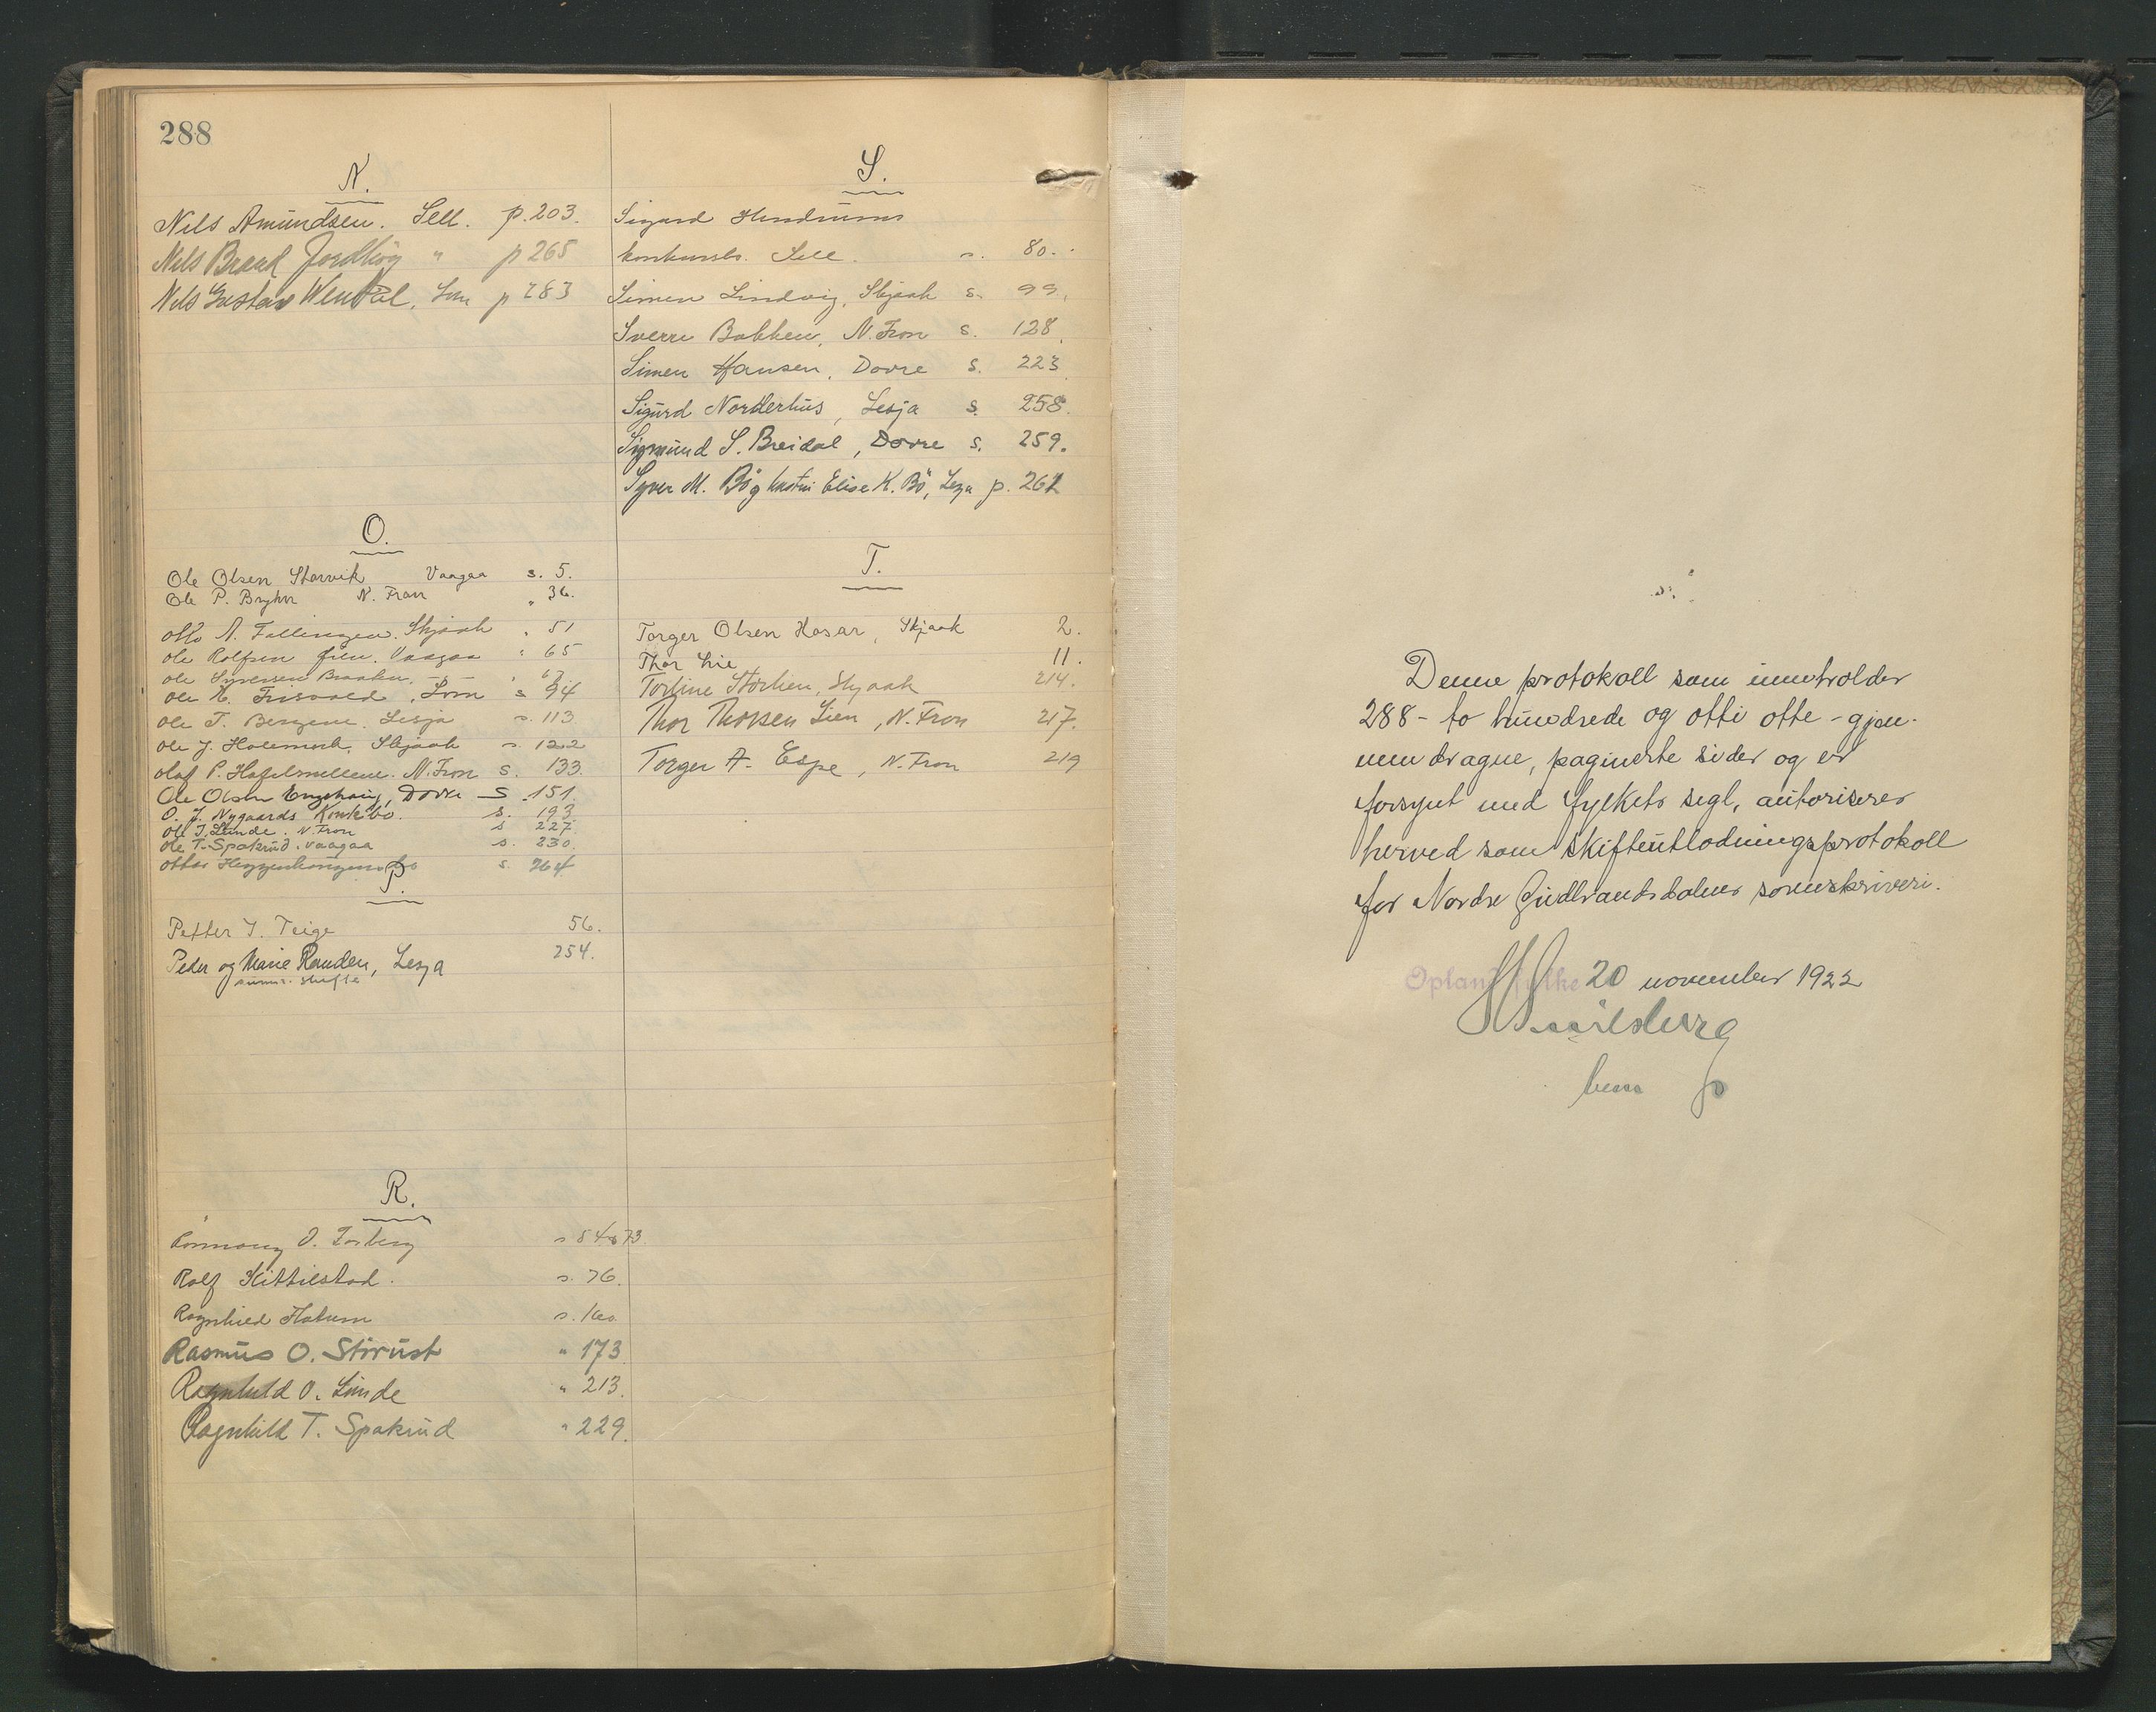 288
N.
Nils Amundsen. Sell. p. 203.
Nils Brand Jordhøy " p 265
Nils Gustav Wendal, Lom p 283
O.
Ole Olsen Storvik Vaagaa s. 5.
Ole P. Bryhn N. Fron " 36.
Otto A. Fellingen. Skjaak " 51
Ole Rolfsen Øien. Vaagaa " 65
Ole Syversen Braaten, - " - " 67
Ole H. Frisvold, Lom s 94
Ole T. Bergene. Lesja s. 113
Ole J. Skjaak s. 122
Olaf P. N. Fron s. 133.
Ole Olsen Engehaug, Dovre S. 151.
O. J. Nygaards Konk.bo. s. 193
Ole J. Lunde. N. Fron s 227.
Ole T. Spakrud. Vaagaa s. 230.
Ottar Heggenhaugens bo s. 264
P.
Petter J. Teige 56.
Peder og Marie Randen, Lesja 254.
R.
O. s 54 73
Rolf Kittilstad. s. 76.
Ragnhild s. 160
Rasmus O. Stirust " 173
Ragnhild O. Lunde " 213.
Ragnhild T. Spakrud " 229.
S.
Sigurd
konkursbo. Sell. s. 80.
Simen Lindvig, Skjaak s. 99.
Sverre Bakken, N. Fron s. 128.
Simen Hansen, Dovre s. 223
Sigurd Norderhus, Lesja s. 258.
Sigmund S. Breidal, Dovre s. 259.
Syver M. Bö og hustru Elise K. Bö, Lesja p. 261
T.
Torger Olsen Hosar, Skjaak 2.
Thor Lie 11.
Torline Storlien, Skjaak 214.
Thor Thorsen Lien, N. Fron 217.
Torger A. Espe, N. Fron 219
Denne protokoll som inneholder
288 - to hundrede og otti otte - gjen-
nemdragne, paginerte sider og er
forsynt med fylkets segl, autoriseres
herved som skifteutlodningsprotokoll
for Nordre Gudbrandsdalens sorenskriveri.
Opland fylke 20 november 1922